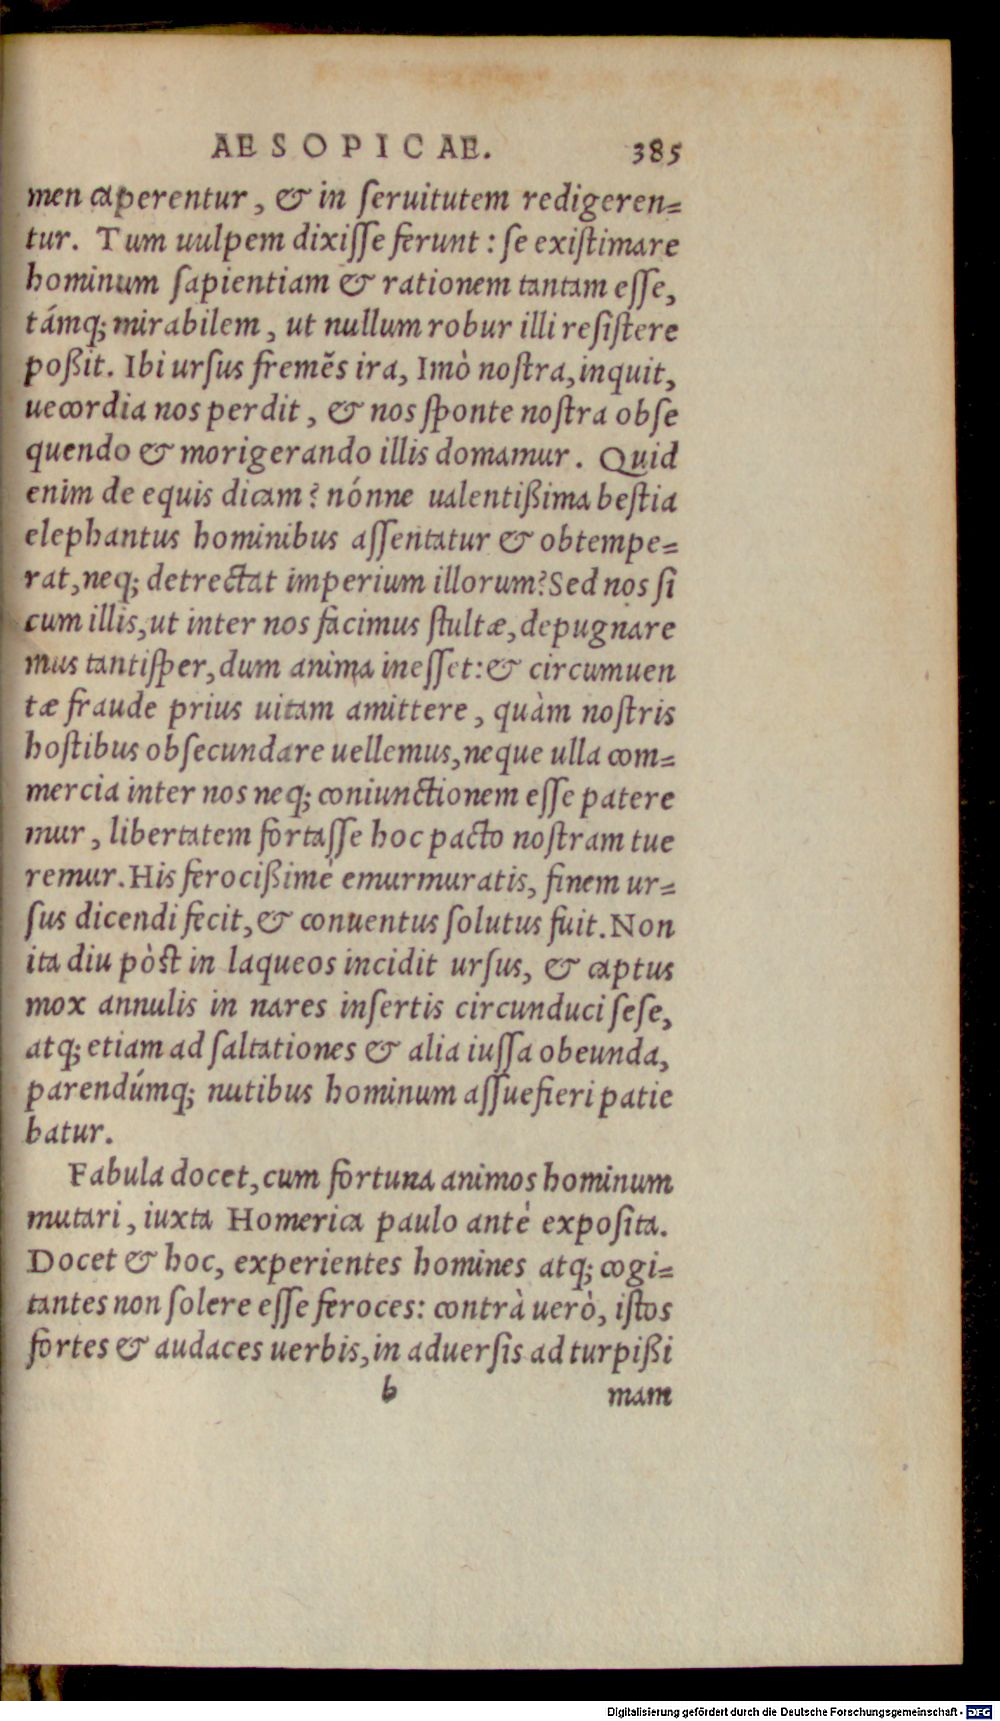 AESOPICAE. 385
men caperentur, & in ſeruitutem redigeren=
tur. Tum uulpem dixiſſe ferunt: ſe exiſtimare
hominum ſapientiam & rationem tantam eſſe,
támq; mirabilem, ut nullum robur illi reſiſtere
poßit. Ibi urſus fremẽs ira, Imò noſtra, inquit,
uecordia nos perdit, & nos ſponte noſtra obſe
quendo & morigerando illis domamur. Quid
enim de equis dicam? nónne ualentißima beſtia
elephantus hominibus aſſentatur & obtempe=
rat, neq; detrectat imperium illorum? Sed nos ſi
cum illis, ut inter nos facimus ſtultæ, depugnare
mus tantiſper, dum anima ineſſet: & circumuen
tæ fraude prius uitam amittere, quàm noſtris
hoſtibus obſecundare uellemus, neque ulla com=
mercia inter nos neq; coniunctionem eſſe patere
mur, libertatem fortaſſe hoc pacto noſtram tue
remur. His ferocißimè emurmuratis, finem ur=
ſus dicendi fecit, & conuentus ſolutus fuit. Non
ita diu pòſt in laqueos incidit urſus, & captus
mox annulis in nares inſertis circunduci ſeſe,
atq; etiam ad ſaltationes & alia iuſſa obeunda,
parendúmq; nutibus hominum aſſuefieri patie
batur.
Fabula docet, cum fortuna animos hominum
mutari, iuxta Homerica paulo antè expoſita.
Docet & hoc, experientes homines atq; cogi=
tantes non ſolere eſſe feroces: contrà uerò, iſtos
fortes & audaces uerbis, in aduerſis ad turpißi
b mam
Digitalisierung gefördert durch die Deutsche Forschungsgemeinschaft - DFG